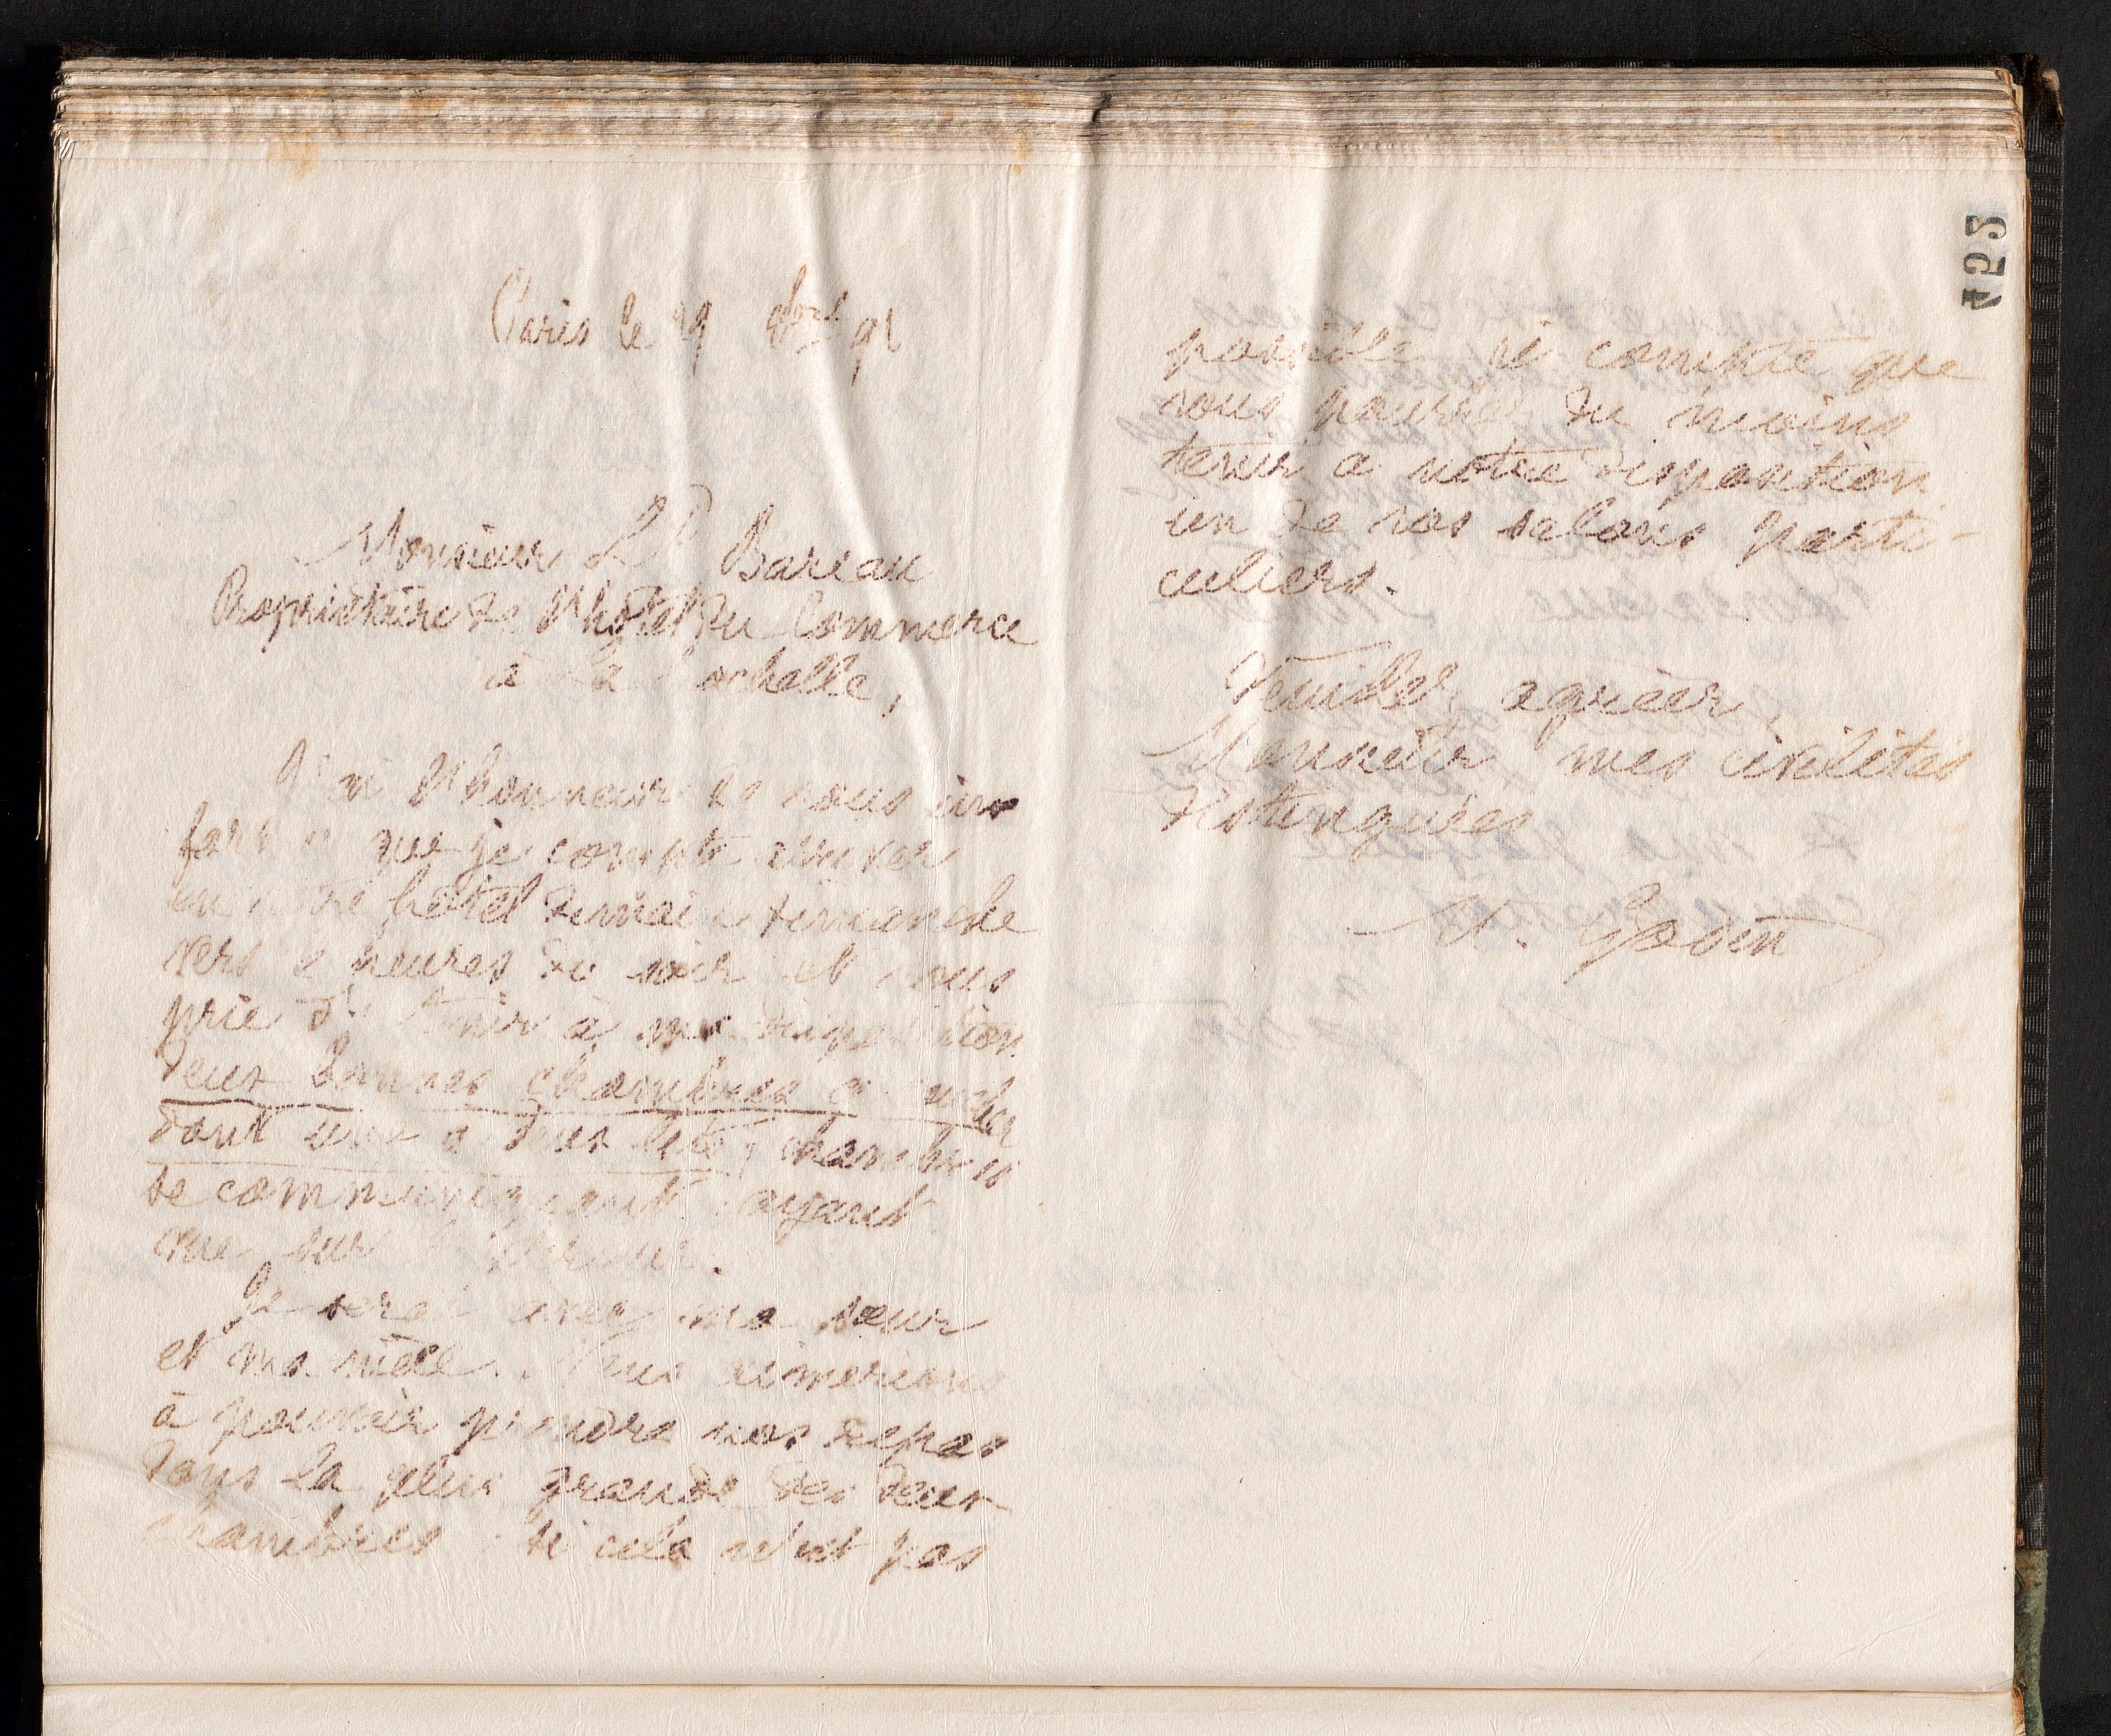 Paris le 19 9bre 91
Monsieur Ld Bareau
Propriétaire de l'hôtel du Commerce
à La Rochelle,
J'ai l'honneur de vous in
former que je compte arriver
en votre hôtel demain dimanche
vers heures du soir et vous
prie de tenir à ma disposition
deux bonnes chambres à coucher
dont une à deux lits, chambres
se communiquant ayant
vue sur l'extérieur.
Je serai avec ma sœur
et ma nièce. Nous aimerions
à pouvoir prendre nos repas
dans la plus grande des deux
chambres ; si cela n'est pas
possible je compte que
vous pourrez du moins
tenir à notre disposition
un de vos salons parti-
culiers.
Veuillez agréer,
Monsieur, mes civilités
distinguées
M. Godin
423